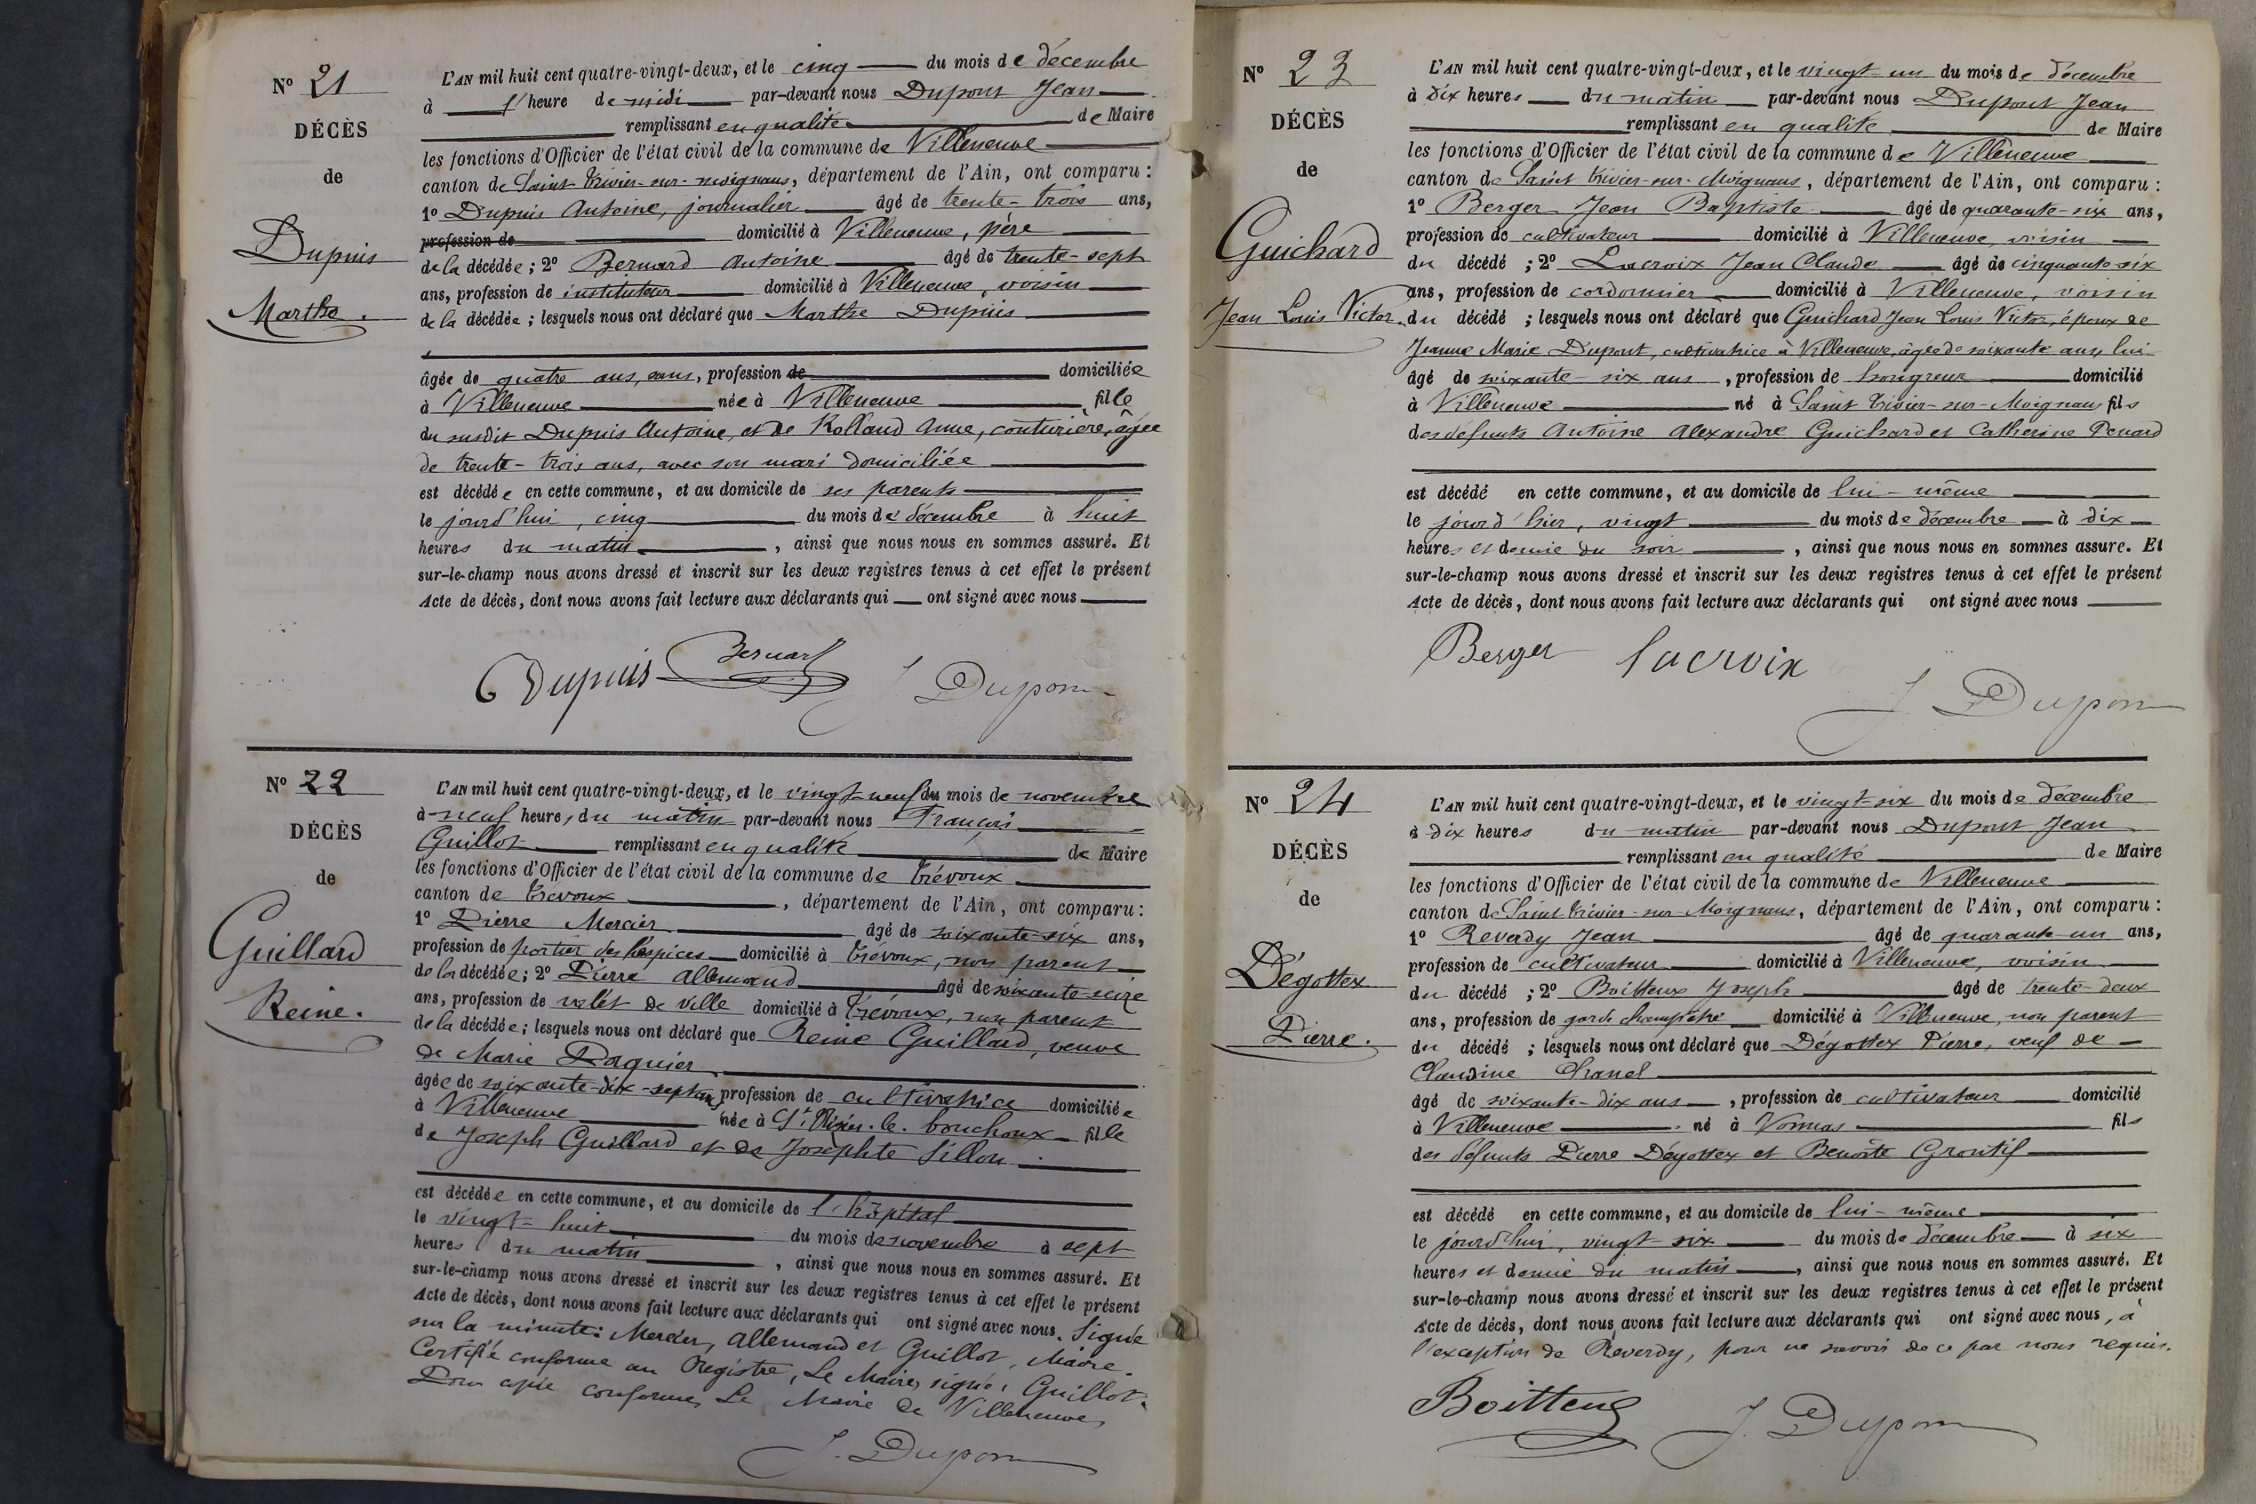 N° 21
DÉCÈS
de
Dupuis
Marthe.
L'AN mil huit cent quatre-vingt-deux, et le cinq du mois de décembre
à 1 heure de midi par-devant nous Dupont Jean
remplissant en qualité de Maire
les fonctions d'Officier de l'état civil de la commune de Villeneuve
canton de Saint Trivier-sur-moignans, département de l'Ain, ont comparu :
1° Dupuis Antoine, journalier âgé de trente-trois ans,
profession de domicilié à Villeneuve, père
de la décédée ; 2° Bernard Antoine âgé de trente-sept
ans, profession de instituteur domicilié à Villeneuve, voisin
de la décédée ; lesquels nous ont déclaré que Marthe Dupuis
âgée de quatre ans, sans, profession de domiciliée
à Villeneuve née à Villeneuve fille
du susdit Dupuis Antoine, et de Rolland Anne, couturière, âgée
de trente-trois ans, avec son mari domiciliée
est décédée en cette commune, et au domicile de ses parents
le jourd'hui, cinq du mois de décembre à huit
heures du matin, ainsi que nous nous en sommes assuré. Et
sur-le-champ nous avons dressé et inscrit sur les deux registres tenus à cet effet le présent
Acte de décès, dont nous avons fait lecture aux déclarants qui ont signé avec nous
Dupuis Bernard J. Dupont
N° 22
DÉCÈS
de
Guillard
Reine.
L'AN mil huit cent quatre-vingt-deux, et le vingt-neuf du mois de novembre
à neuf heures du matin par-devant nous François
Guillot remplissant en qualité de Maire
les fonctions d'Officier de l'état civil de la commune de Trévoux
canton de Trévoux, département de l'Ain, ont comparu :
1° Pierre Mercier âgé de soixante-six ans,
profession de portier des hospices domicilié à Trévoux, non parent
de la décédée ; 2° Pierre Allemand âgé de soixante-seize
ans, profession de valet de ville domicilié à Trévoux, non parent
de la décédée ; lesquels nous ont déclaré que Reine Guillard, veuve
de Marie
âgée de soixante-dix-sept ans, profession de cultivatrice domiciliée
à Villeneuve née à St le bouchoux fille
de Joseph Guillard et de Josephte Sillon
est décédée en cette commune, et au domicile de l'hôpital
le vingt-huit du mois de novembre à sept
heures du matin, ainsi que nous nous en sommes assuré. Et
sur-le-champ nous avons dressé et inscrit sur les deux registres tenus à cet effet le présent
Acte de décès, dont nous avons fait lecture aux déclarants qui ont signé avec nous. Signé
sur la minute : Mercier, Allemand et Guillot, Maire.
Certifié conforme au Registre, Le Maire, signé, Guillot.
Pour copie conforme, Le Maire de Villeneuve,
J. Dupont
N° 23
DÉCÈS
de
Guichard
Jean Louis Victor.
L'AN mil huit cent quatre-vingt-deux, et le vingt-un du mois de décembre
à dix heures du matin par-devant nous Dupont Jean
remplissant en qualité de Maire
les fonctions d'Officier de l'état civil de la commune de Villeneuve
canton de Saint Trivier-sur-Moignans, département de l'Ain, ont comparu :
1° Berger Jean Baptiste âgé de quarante-six ans,
profession de cultivateur domicilié à Villeneuve, voisin
du décédé ; 2° Lacroix Jean Claude âgé de cinquante-six
ans, profession de cordonnier domicilié à Villeneuve, voisin
du décédé ; lesquels nous ont déclaré que Guichard Jean Louis Victor, époux de
Jeanne Marie Dupont, cultivatrice à Villeneuve, âgée de soixante ans, lui
âgé de soixante-six ans, profession de hongreur domicilié
à Villeneuve né à Saint Trivier-sur-Moignans fils
des défunts Antoine Alexandre Guichard et Catherine Penard
est décédé en cette commune, et au domicile de lui-même
le jour d'hier, vingt du mois de décembre à dix
heures et demie du soir, ainsi que nous nous en sommes assuré. Et
sur-le-champ nous avons dressé et inscrit sur les deux registres tenus à cet effet le présent
Acte de décès, dont nous avons fait lecture aux déclarants qui ont signé avec nous
Berger lacroix
J. Dupont
N° 24
DÉCÈS
de
Dégottex
Pierre.
L'AN mil huit cent quatre-vingt-deux, et le vingt-six du mois de décembre
à dix heures du matin par-devant nous Dupont Jean
remplissant en qualité de Maire
les fonctions d'Officier de l'état civil de la commune de Villeneuve
canton de Saint Trivier-sur-Moignans, département de l'Ain, ont comparu :
1° Reverdy Jean âgé de quarante-un ans,
profession de cultivateur domicilié à Villeneuve, voisin
du décédé ; 2° Boitteux Joseph âgé de trente-deux
ans, profession de garde champêtre domicilié à Villeneuve, non parent
du décédé ; lesquels nous ont déclaré que Dégottex Pierre, veuf de
Claudine Chanel
âgé de soixante-dix ans, profession de cultivateur domicilié
à Villeneuve né à Vonnas fils
des défunts Pierre Dégottex et Benoîte
est décédé en cette commune, et au domicile de lui-même
le jourd'hui, vingt-six du mois de décembre à six
heures et demie du matin, ainsi que nous nous en sommes assuré. Et
sur-le-champ nous avons dressé et inscrit sur les deux registres tenus à cet effet le présent
Acte de décès, dont nous avons fait lecture aux déclarants qui ont signé avec nous, à
l'exception de Reverdy, pour ne savoir de ce par nous requis.
Boitteux J. Dupont